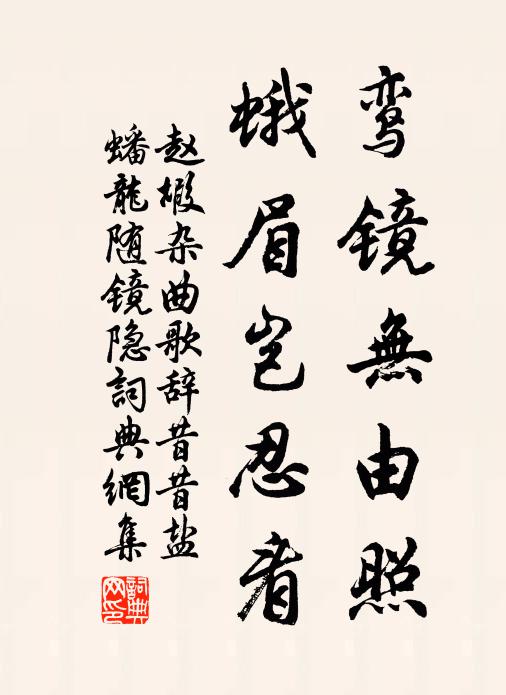 鸾镜無由照
蛾眉岂忍看
赵嘏杂曲歌辞昔昔盐
蟠龍随镜隐詞典網集
詞典網印